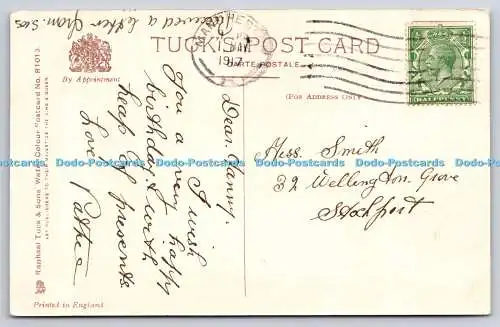 TUCK'S POST CARD
CARTE POSTALE
By Appointment
(For Address Only)
HALFPENNY
1917
Dear Fanny.
I wish
you a very happy
birthday & with
heap of presents
Love
Received a letter from
Miss. Smith
32 Wellington Grove
Stockport
Raphael Tuck & Sons Water Colour Postcard No. 81013.
ART PUBLISHERS TO THEIR MAJESTIES THE KING & QUEEN
Printed in England
Dodo-Postcards Dodo-Postcards Dodo-Postcards Dodo-Postcards Dodo-Postcards